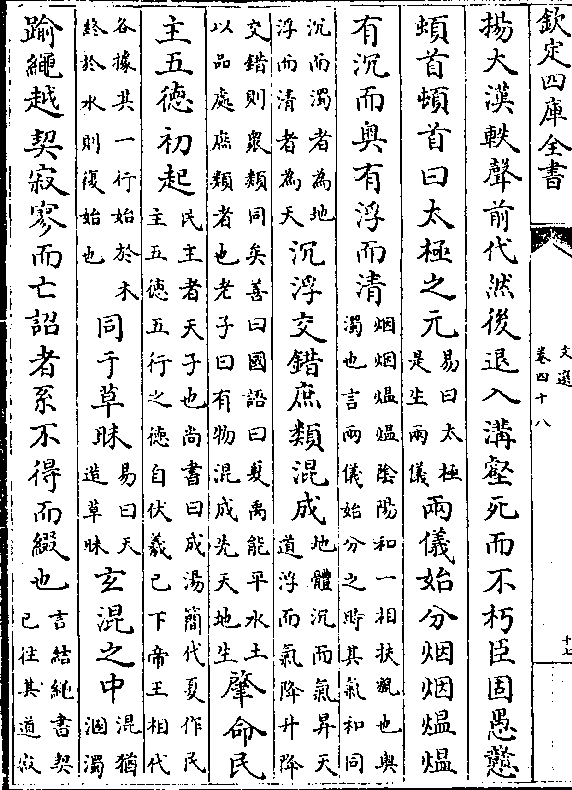 欽定四庫全書
文選
卷四十八
十七
揚大漢軼聲前代然後退入溝壑死而不朽臣固愚戇
頓首頓首曰太極之元易曰太極是生兩儀兩儀始分烟烟熅熅
有沉而奥有浮而清烟烟熅熅陰陽和一相扶貌也奥濁也言兩儀始分之時其氣和同
沉而濁者為地浮而清者為天沉浮交錯庶類混成地體沉而氣昇天道浮而氣降升降
交錯則衆類同矣善曰國語曰夏禹能平水土以品處庶類者也老子曰有物混成先天地生肇命民
主五德初起民主者天子也尚書曰成湯簡代夏作民主五德五行之德自伏羲已下帝王相代
各據其一行始於木終於水則復始也同于草昧易曰天造草昧玄混之中混猶溷濁
踰繩越契寂寥而亡詔者系不得而綴也言結繩書契已往其道寂